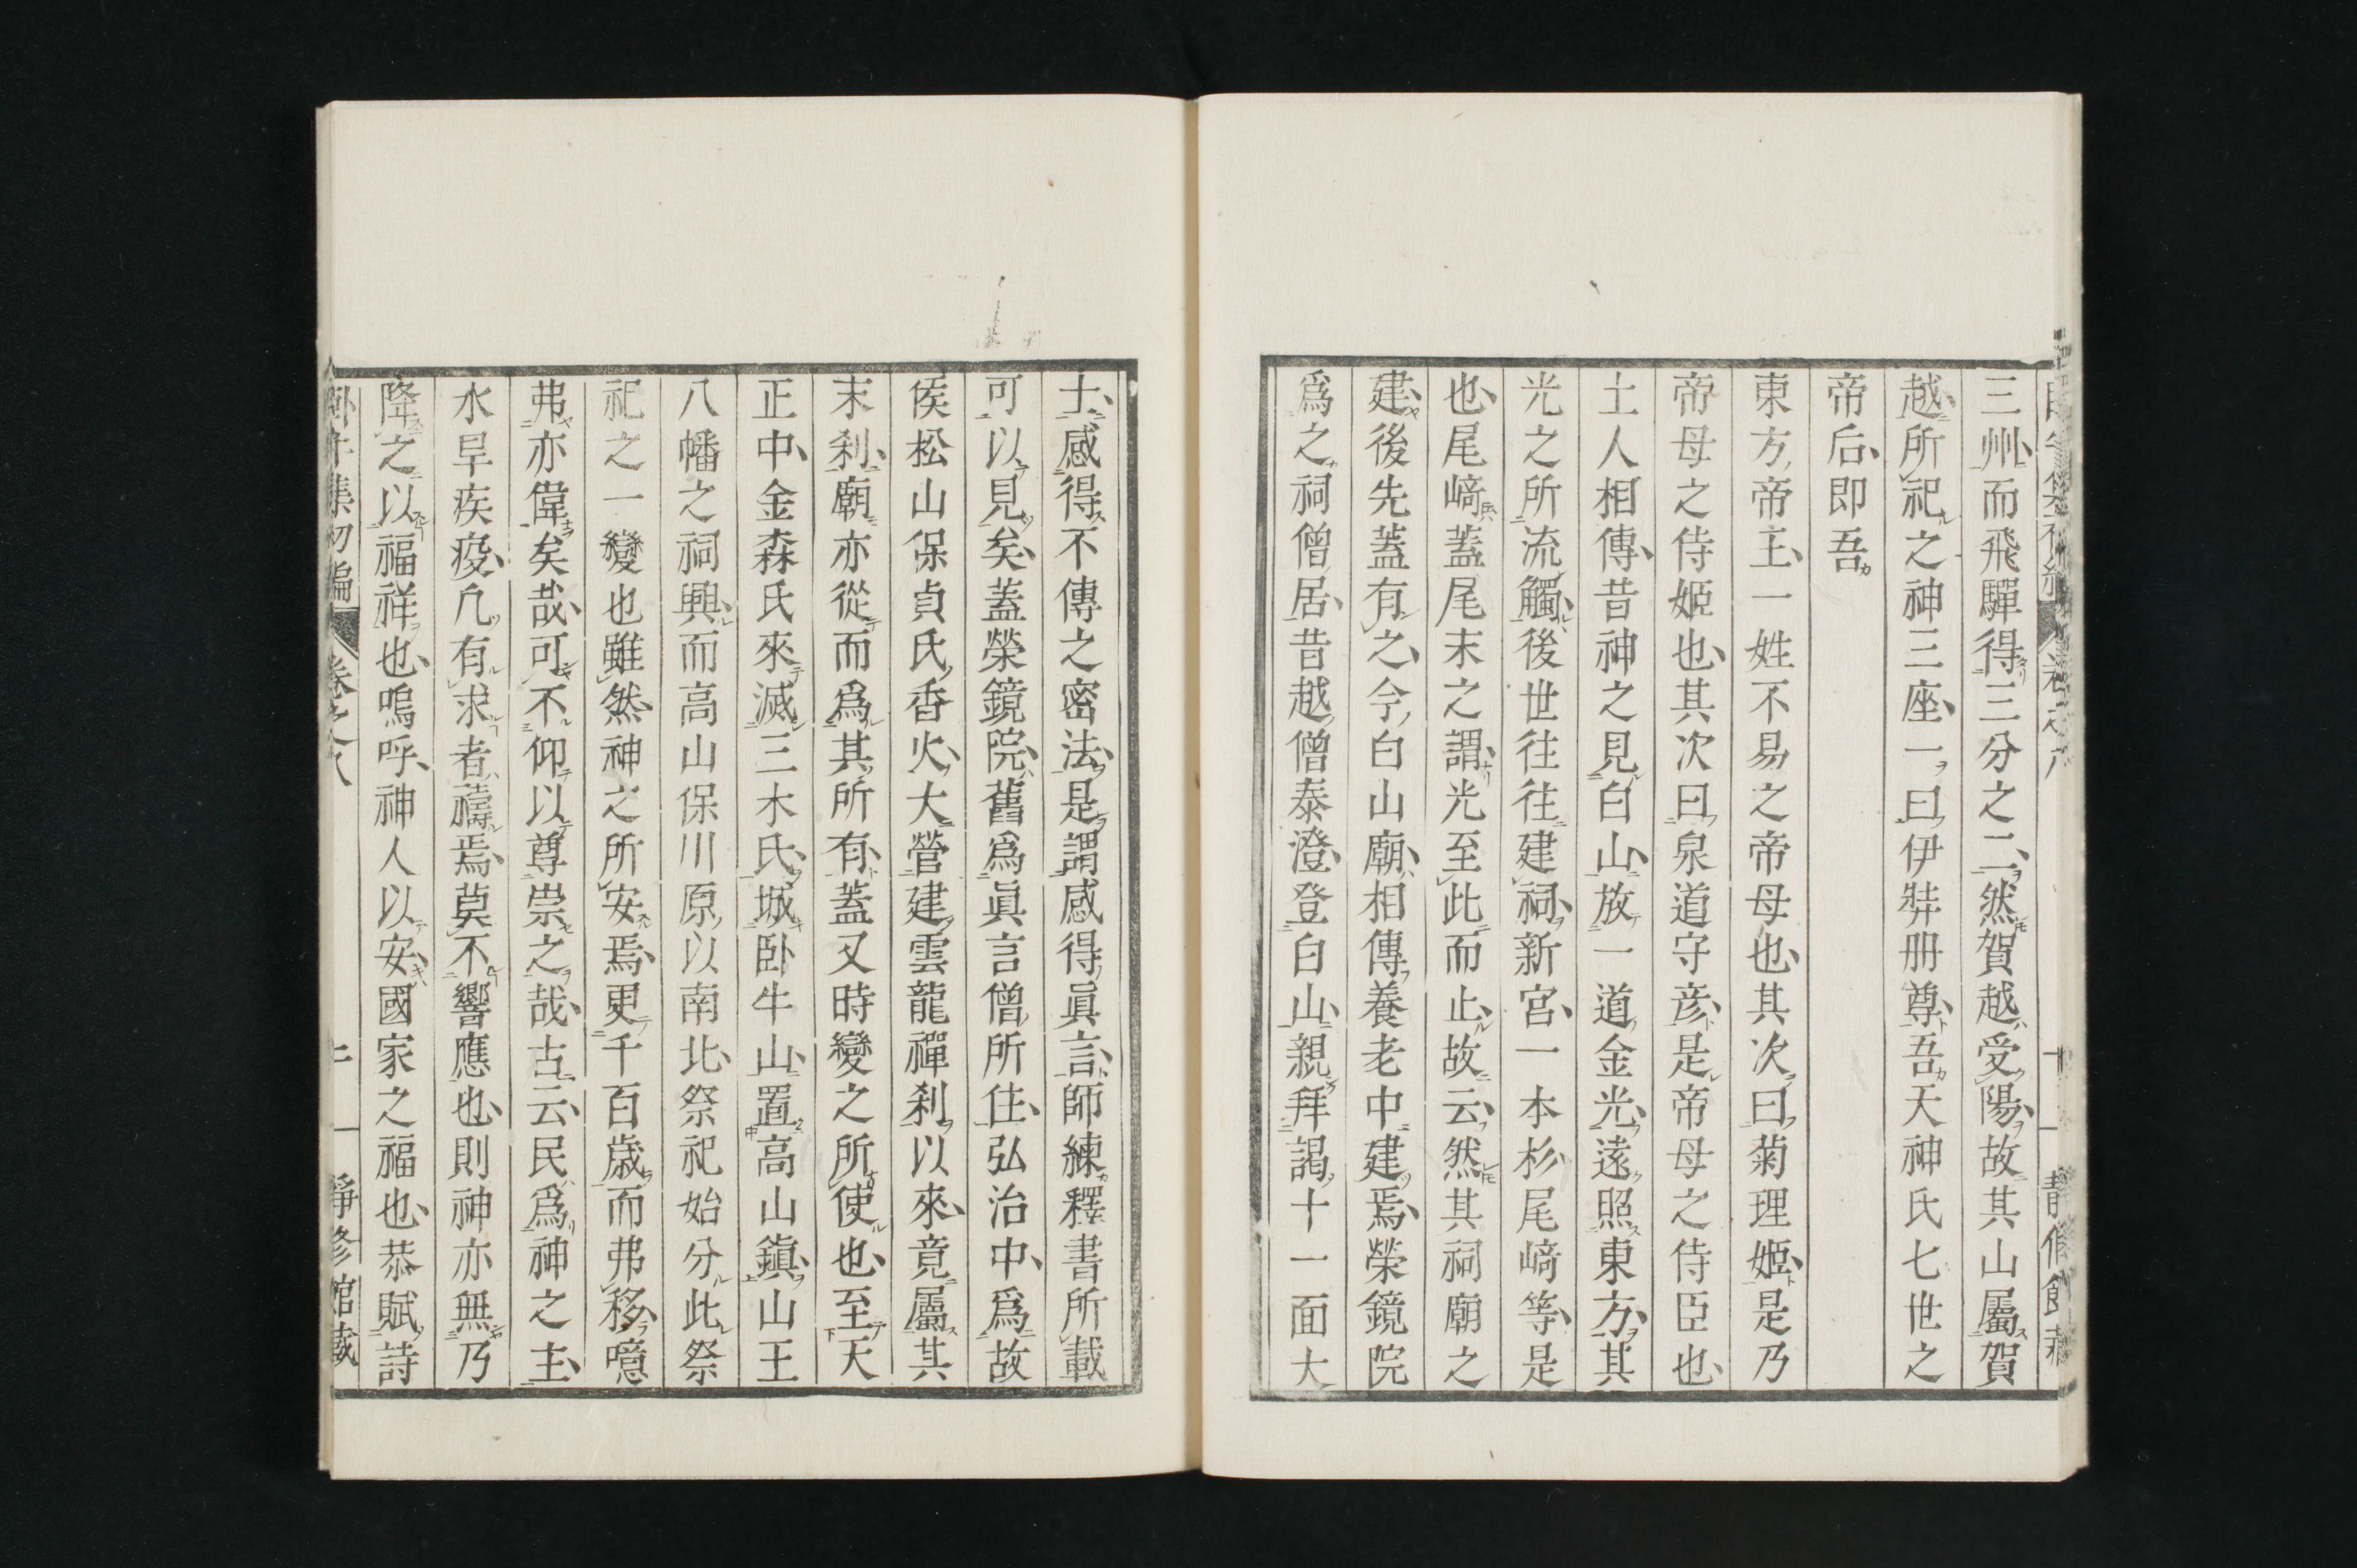 三州而飛驒得三分之二然賀越受陽故其山屬賀
越所祀之神三座一曰伊弉册尊吾天神氏七世之
帝后即吾
東方帝王一姓不易之帝母也其次曰菊理姬是乃
帝母之侍姬也其次曰泉道守彦是帝母之侍臣也
土人相傳昔神之見白山放一道金光遠照東方其
光之所流觸後世往往建祠新宮一本杉尾﨑等是
也尾﨑蓋尾末之謂光至此而止故云然其祠廟之
建後先蓋有之今白山廟相傳養老中建焉榮鏡院
爲之祠僧居昔越僧泰澄登白山親拜謁十一面大
士感得不傳之密法是謂感得眞言師練釋書所載
可以見矣蓋榮鏡院舊爲眞言僧所住弘治中爲故
侯松山保貞氏香火大營建雲龍禪刹以來竟屬其
末刹廟亦從而爲其所有蓋又時變之所使也至天
正中金森氏來滅三木氏城卧牛山置高山鎭山王
八幡之祠興而高山保川原以南北祭祀始分此祭
祀之一變也雖然神之所安焉更千百歳而弗移噫
弗亦偉矣哉可不仰以尊崇之哉古云民爲神之主
水旱疾疫凢有求者禱焉莫不響應也則神亦無乃
降之以福祥也嗚呼神人以安國家之福也恭賦詩
集初編 卷之八 十一 靜修館藏